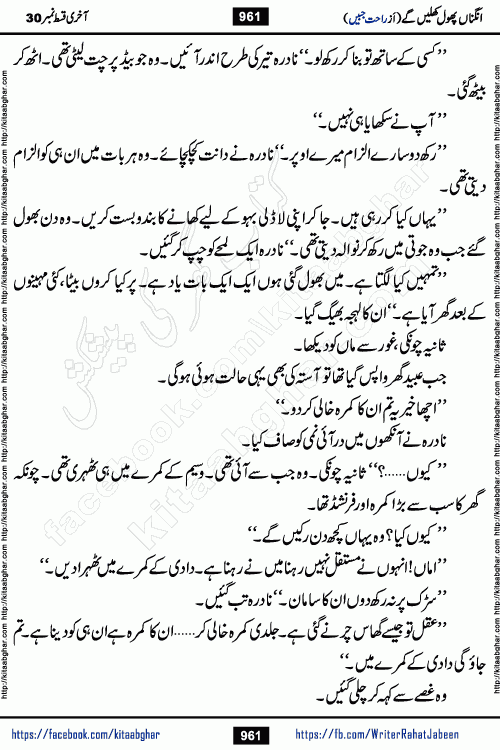 انگناں پھول کھلیں گے (از راحت جبیں)
961
آخری قسط نمبر 30
’’کسی کے ساتھ تو بنا کر رکھ لو۔‘‘ نادرہ تیر کی طرح اندر آئیں۔ وہ جو بیڈ پر چت لیٹی تھی۔ اٹھ کر
بیٹھ گئی۔
’’آپ نے سکھایا ہی نہیں۔‘‘
’’رکھ دو سارے الزام میرے اوپر۔‘‘ نادرہ نے دانت کچکچائے۔ وہ ہر بات میں ان ہی کو الزام
دیتی تھی۔
’’یہاں کیا کر رہی ہیں۔ جا کر اپنی لاڈلی بہو کے لیے کھانے کا بندوبست کریں۔ وہ دن بھول
گئے جب وہ جوتی میں رکھ کر نوالہ دیتی تھی۔‘‘ نادرہ ایک لمحے کو چپ کر گئیں۔
’’تمہیں کیا لگتا ہے۔ میں بھول گئی ہوں ایک ایک بات یاد ہے۔ پر کیا کروں بیٹا، کئی مہینوں
کے بعد گھر آیا ہے۔‘‘ ان کا لہجہ بھیگ گیا۔
ثانیہ چونکی، غور سے ماں کو دیکھا۔
جب عبید گھر واپس گیا تھا تو آستہ کی بھی یہی حالت ہوئی ہوگی۔
’’اچھا خیر یہ تم ان کا کمرہ خالی کر دو۔‘‘
نادرہ نے آنکھوں میں در آئی نمی کو صاف کیا۔
’’کیوں......؟‘‘ ثانیہ چونکی۔ وہ جب سے آئی تھی۔ وسیم کے کمرے میں ہی ٹھہری تھی۔ چونکہ
گھر کا سب سے بڑا کمرہ اور فرنشڈ تھا۔
’’کیوں کیا؟ وہ یہاں کچھ دن رکیں گے۔‘‘
’’اماں! انہوں نے مستقل نہیں رہنا میں نے رہنا ہے۔ دادی کے کمرے میں ٹھہرا دیں۔‘‘
’’سڑک پر نہ رکھ دوں ان کا سامان۔‘‘ نادرہ تپ گئیں۔
’’عقل تو جیسے گھاس چرنے گئی ہے۔ جلدی کمرہ خالی کر...... ان کا کمرہ ہے ان ہی کو دینا ہے۔ تم
جاؤ گی دادی کے کمرے میں۔‘‘
وہ غصے سے کہہ کر چلی گئیں۔
کتاب گھر کی پیشکش
kitaabghar.com
facebook.com/kitaabghar
http://kitaabghar.com http://kitaabghar.com http://kitaabghar.com http://kitaabghar.com http://kitaabghar.com
https://facebook.com/kitaabghar
961
https://fb.com/WriterRahatJabeen